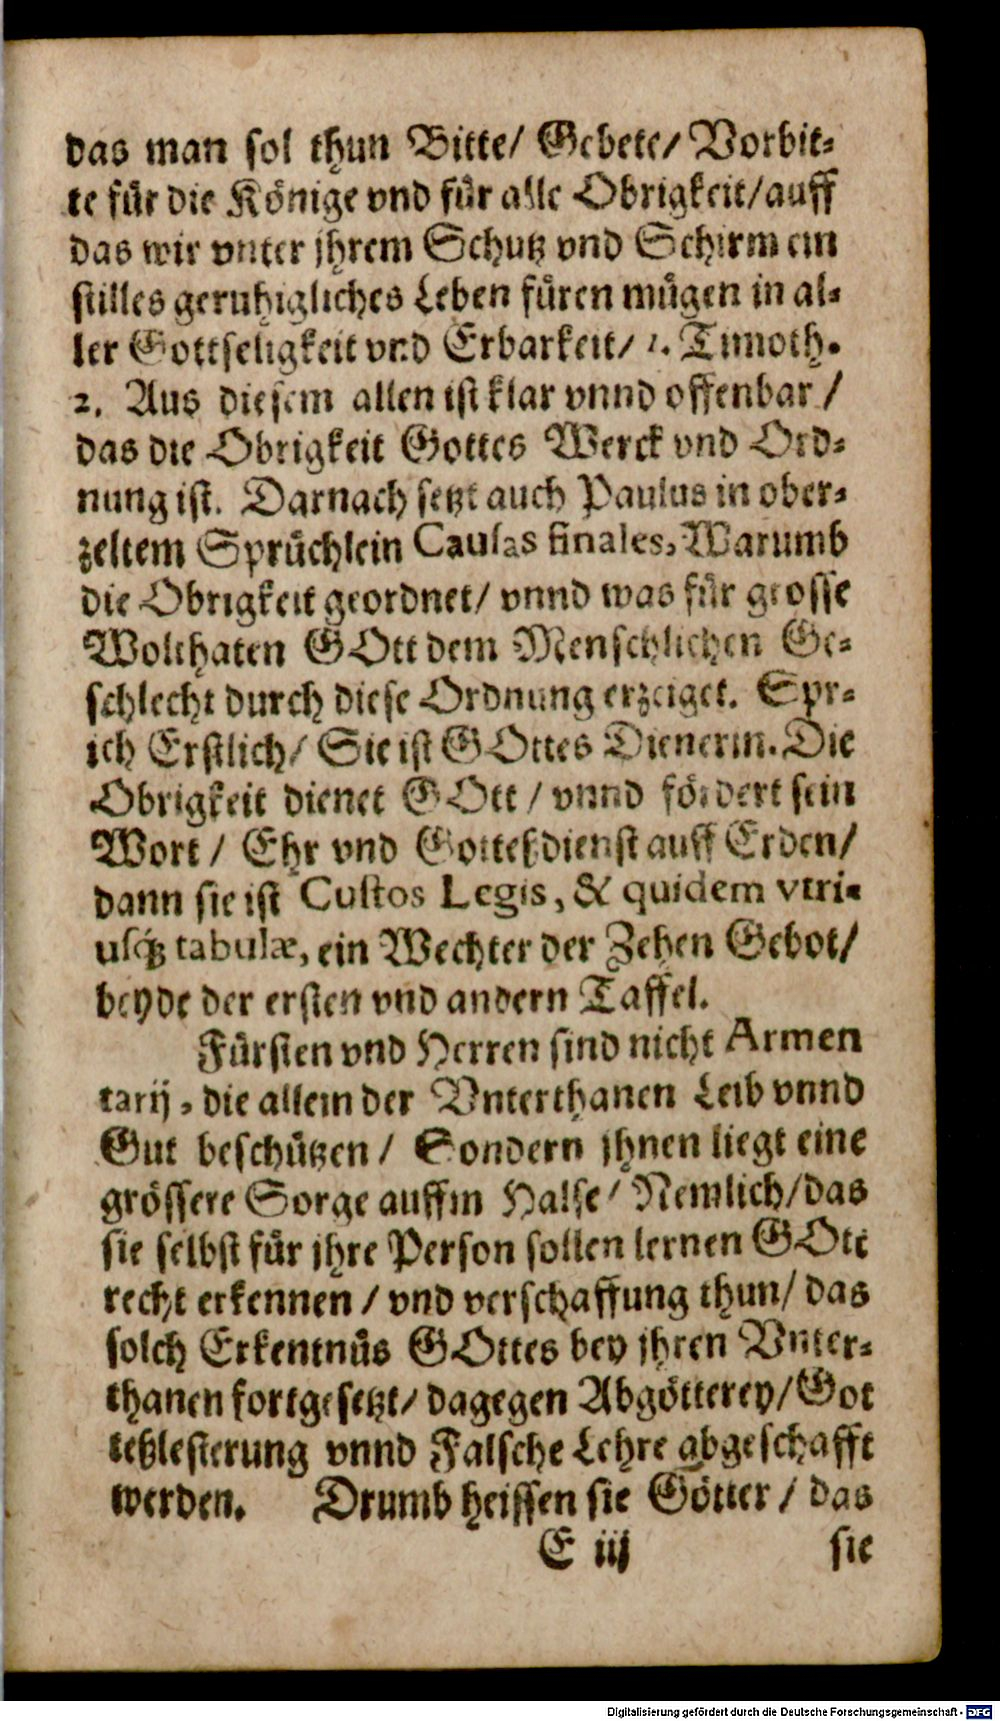 das man sol thun Bitte/ Gebete/ Vorbit-
te fuͤr die Koͤnige vnd fuͤr alle Obrigkeit/auff
das wir vnter jhrem Schutz vnd Schirm ein
stilles geruhigliches Leben fuͤren muͤgen in al-
ler Gottseligkeit vnd Erbarkeit/ 1. Timoth.
2. Aus diesem allen ist klar vnnd offenbar /
das die Obrigkeit Gottes Werck vnd Ord-
nung ist. Darnach setzt auch Paulus in ober-
zeltem Spruͤchlein Causas finales, Warumb
die Obrigkeit geordnet/ vnnd was fuͤr grosse
Wolthaten GOtt dem Menschlichen Ge-
schlecht durch diese Ordnung erzeiget. Spr-
ich Erstlich/ Sie ist GOttes Dienerin. Die
Obrigkeit dienet GOtt / vnnd foͤrdert sein
Wort / Ehr vnd Gotteßdienst auff Erden/
dann sie ist Custos Legis, & quidem vtri-
usq́ꝫ tabulæ, ein Wechter der Zehen Gebot/
beyde der ersten vnd andern Taffel.
Fuͤrsten vnd Herren sind nicht Armen
tarij, die allein der Vnterthanen Leib vnnd
Gut beschuͤtzen / Sondern jhnen liegt eine
groͤssere Sorge auffm Halse/ Nemlich/das
sie selbst fuͤr jhre Person sollen lernen GOtt
recht erkennen / vnd verschaffung thun/ das
solch Erkentnuͤs GOttes bey jhren Vnter-
thanen fortgesetzt/ dagegen Abgoͤtterey/Got
teßlesterung vnnd Falsche Lehre abgeschafft
werden. Drumb heissen sie Goͤtter / das
E iij sie
Digitalisierung gefördert durch die Deutsche Forschungsgemeinschaft - DFG